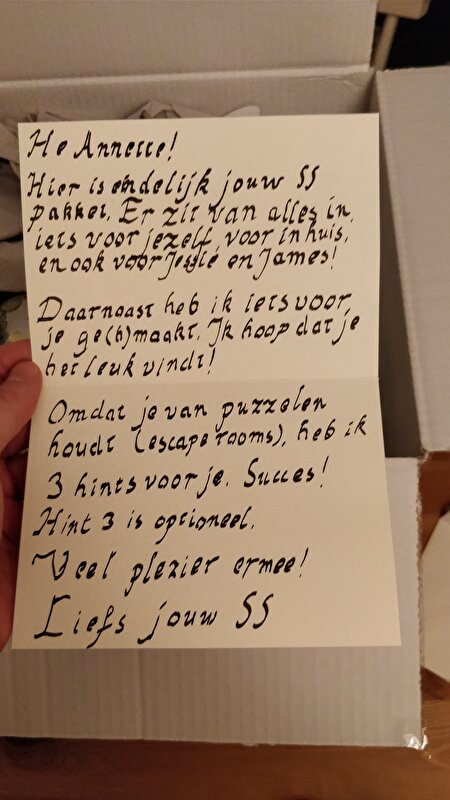 He Annette!
Hier is eindelijk jouw SS
pakket. Er zit van alles in,
iets voor jezelf, voor in huis,
en ook voor Jessie en James!
Daarnaast heb ik iets voor
je ge(h)maakt. Ik hoop dat je
het leuk vindt!
Omdat je van puzzelen
houdt (escape rooms), heb ik
3 hints voor je. Succes!
Hint 3 is optioneel.
Veel plezier ermee!
Liefs jouw SS